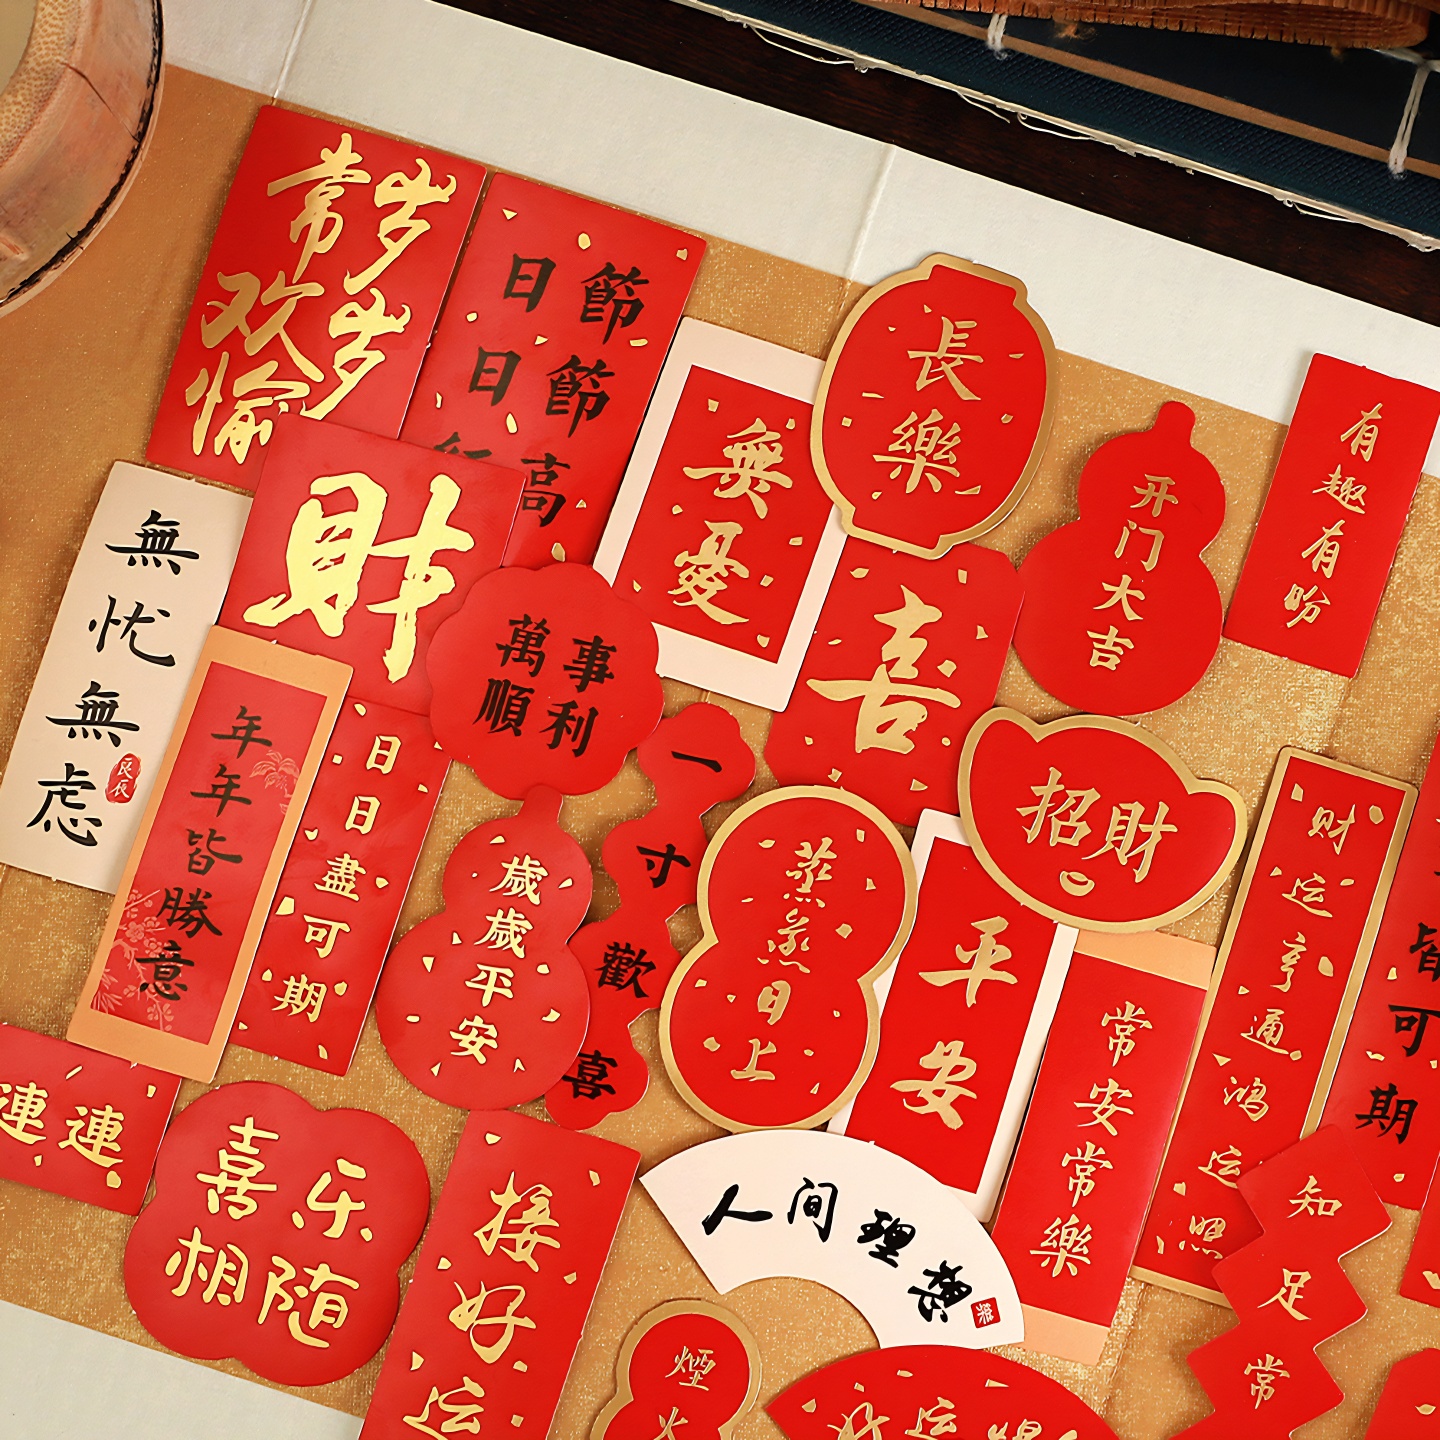 岁岁
常欢愉
節節高
日日
長樂
無憂
有趣有盼
开门大吉
財
無忧無虑
良辰
萬事
順利
喜
招財
年年皆勝意
日日盡可期
一寸歡喜
歲歲平安
蒸蒸日上
平安
财运亨通鸿运照
常安常樂
皆可期
連連
喜乐
相随
接好运
人间理想
知足常
煙火
好运爆